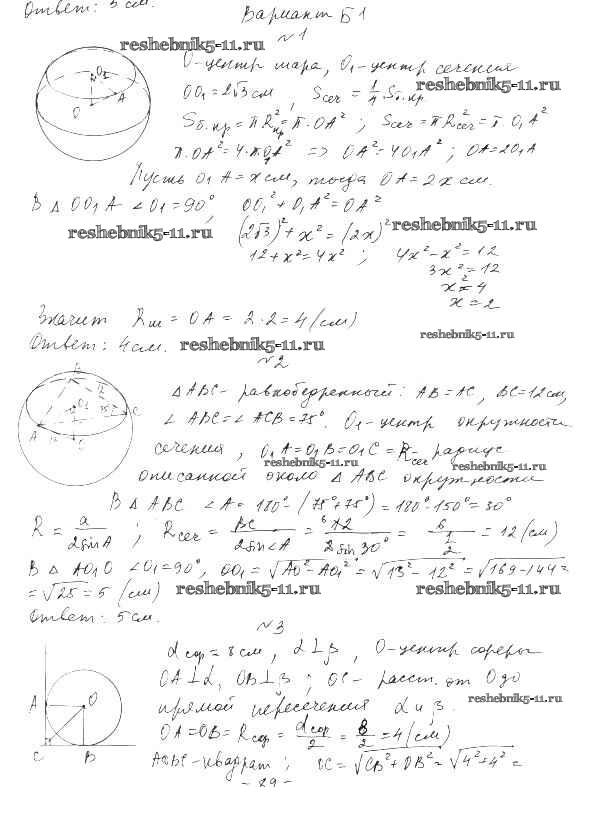 Ответ: 3 см.
Вариант Б1
№1
reshebnik5-11.ru
O-центр шара, O₁-центр сечения
reshebnik5-11.ru
OO₁=2√3 см, Sсеч = 1/4 Sб.кр
Sб.кр=πR²кр=π·OA²; Sсеч=πR²сеч=π·O₁A²
π·OA²=4·πO₁A² => OA²=4O₁A²; OA=2O₁A
Пусть O₁A=x см, тогда OA=2x см.
В △OO₁A ∠O₁=90°, OO₁²+O₁A²=OA²
reshebnik5-11.ru
(2√3)²+x²=(2x)²
reshebnik5-11.ru
12+x²=4x²; 4x²-x²=12
3x²=12
x²=4
x=2
Значит Rш=OA=2·2=4(см)
reshebnik5-11.ru
Ответ: 4 см.
reshebnik5-11.ru
№2
△ABC-равнобедренный: AB=AC, BC=12см,
∠ABC=∠ACB=75°. O₁-центр окружности
сечения, O₁A=O₁B=O₁C=Rсеч-радиус
reshebnik5-11.ru
reshebnik5-11.ru
описанной около △ABC окружности
В △ABC ∠A=180°-(75°+75°)=180°-150°=30°
R = a/2sinA; Rсеч = BC/2sin∠A = 12/2sin30° = 6/(1/2) = 12(см)
В △AO₁O ∠O₁=90°, OO₁=√AO²-AO₁²=√13²-12²=√169-144=
=√25=5 (см)
reshebnik5-11.ru
reshebnik5-11.ru
Ответ: 5см.
№3
dсф=8см, α⊥β, O-центр сферы
OA⊥α, OB⊥β; OC-расст. от O до
reshebnik5-11.ru
прямой пересечения α и β.
OA=OB=Rсф=dсф/2=8/2=4(см)
AOBC-квадрат; OC=√CB²+OB²=√4²+4²=
- 29 -
A
O
C
B